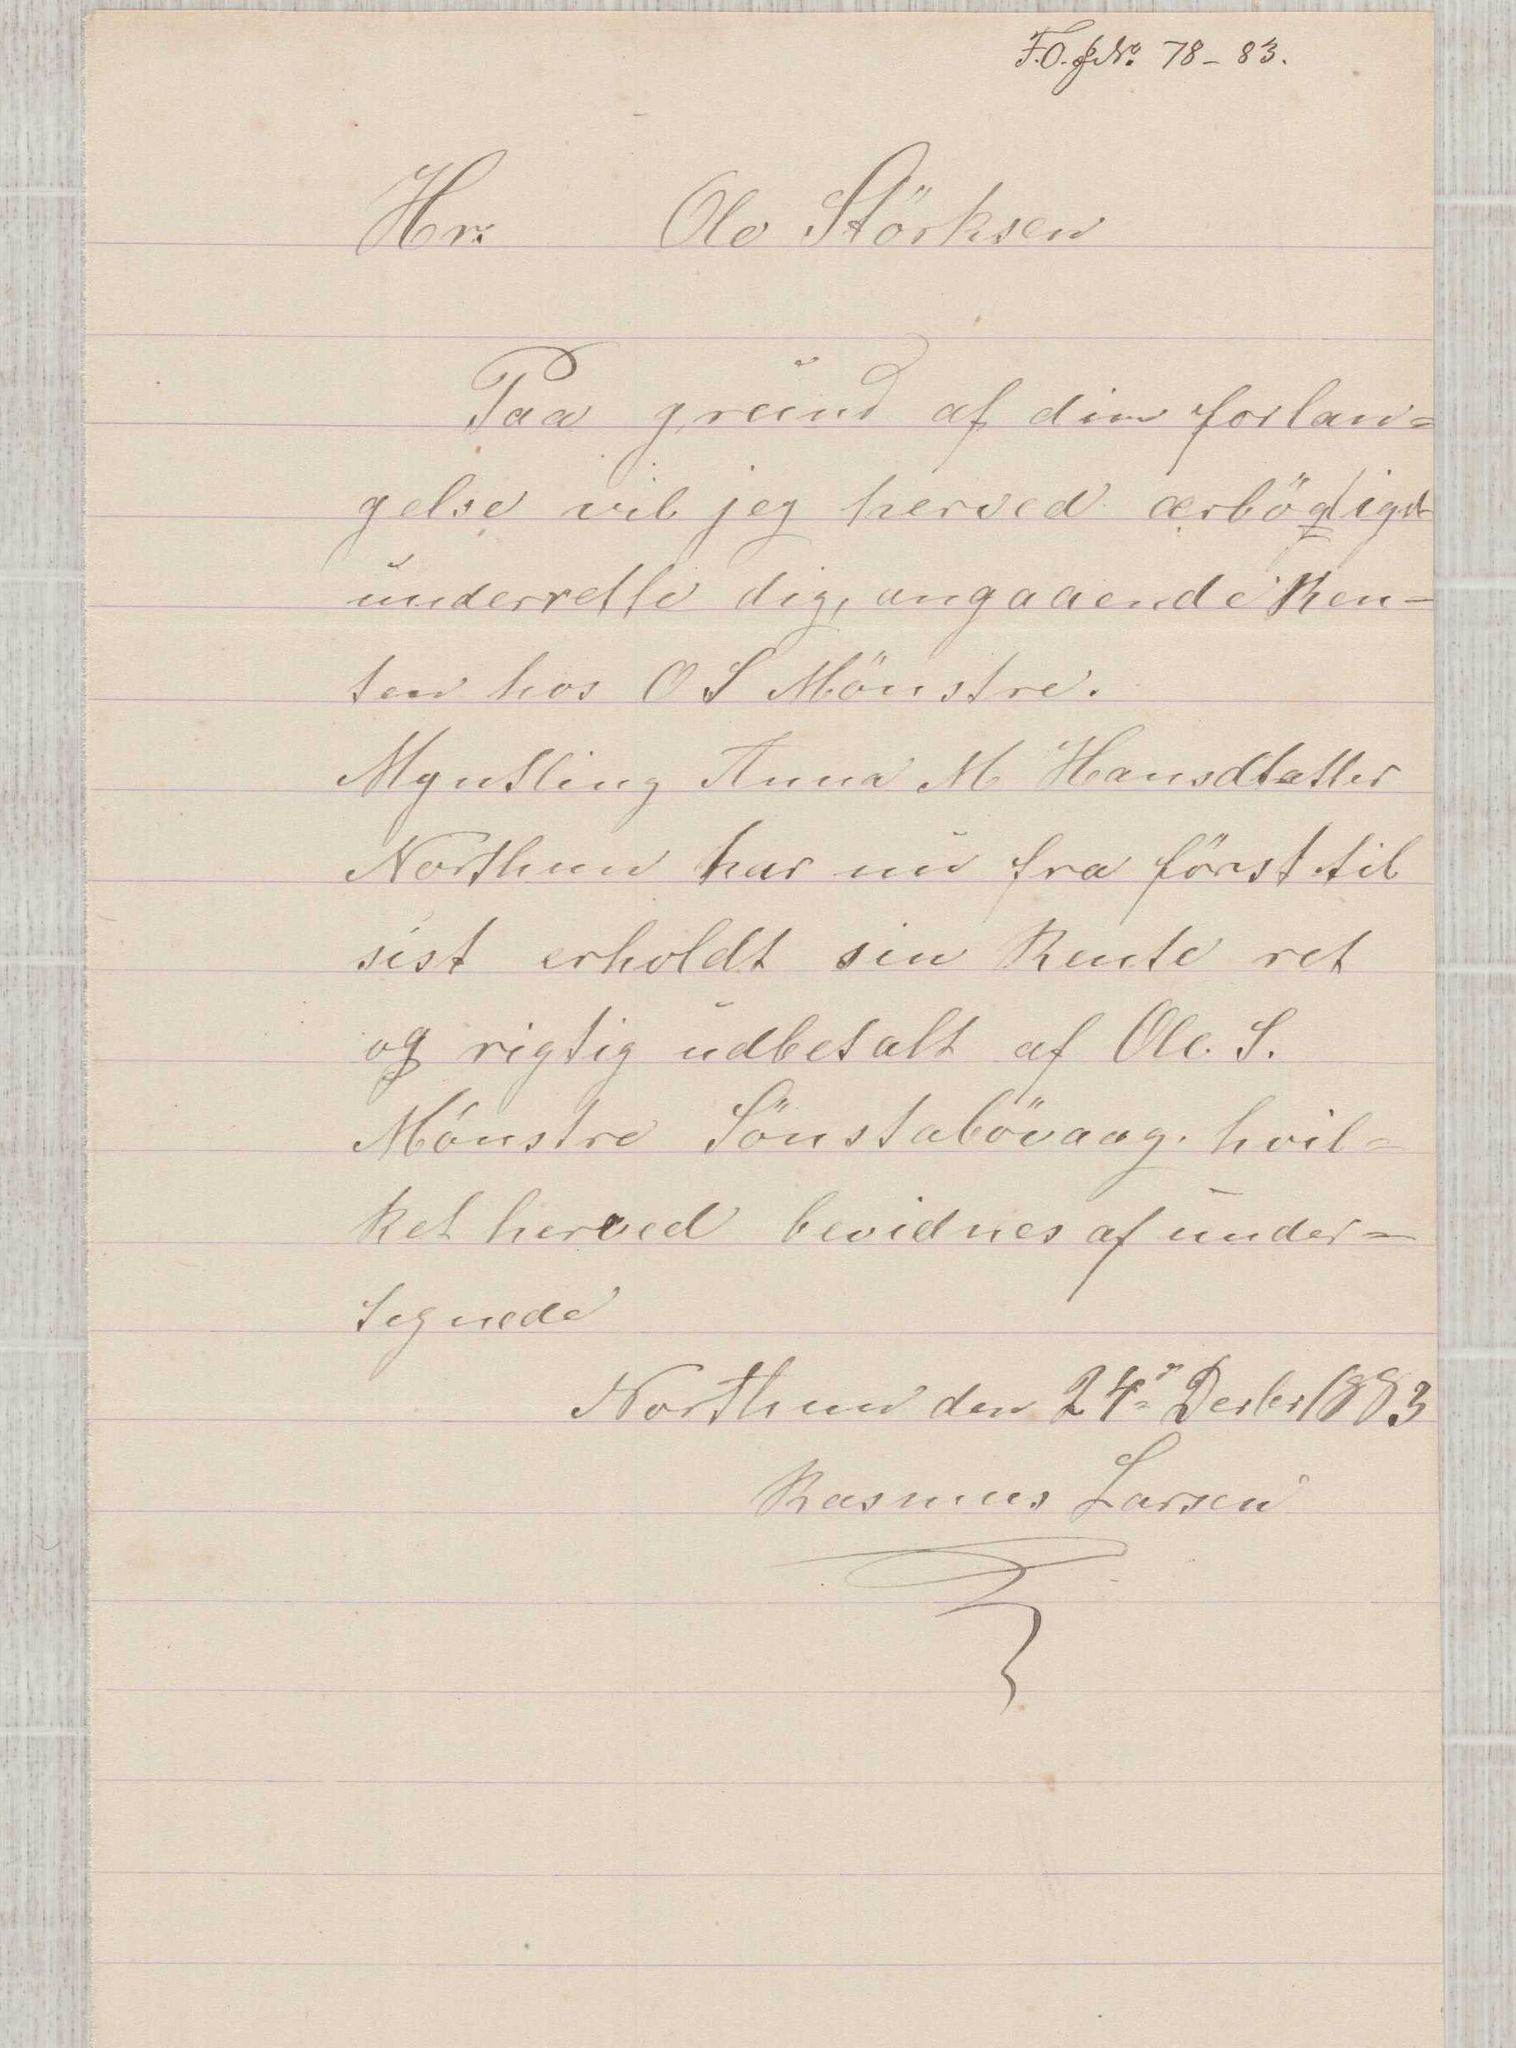 F.O. J№. 78-83.
Hr. Ole Störksen
Paa grŭnd af din forlan=
gelse vil jeg herved ærbödigst
ŭnderrette dig, angaaende Ren-
ten hos O S Mönstre.
Myntling Anna M Hansdtatter
Northun har nŭ fra först til
sist erholdt sin Rente ret
og rigtig ŭdbetalt af Ole. S.
Mönstre Sönstabövaag. hvil=
ket herved bevidnes af ŭnder=
tegnede
Northun den 24de Decbr 1883
Rasmus Larsen